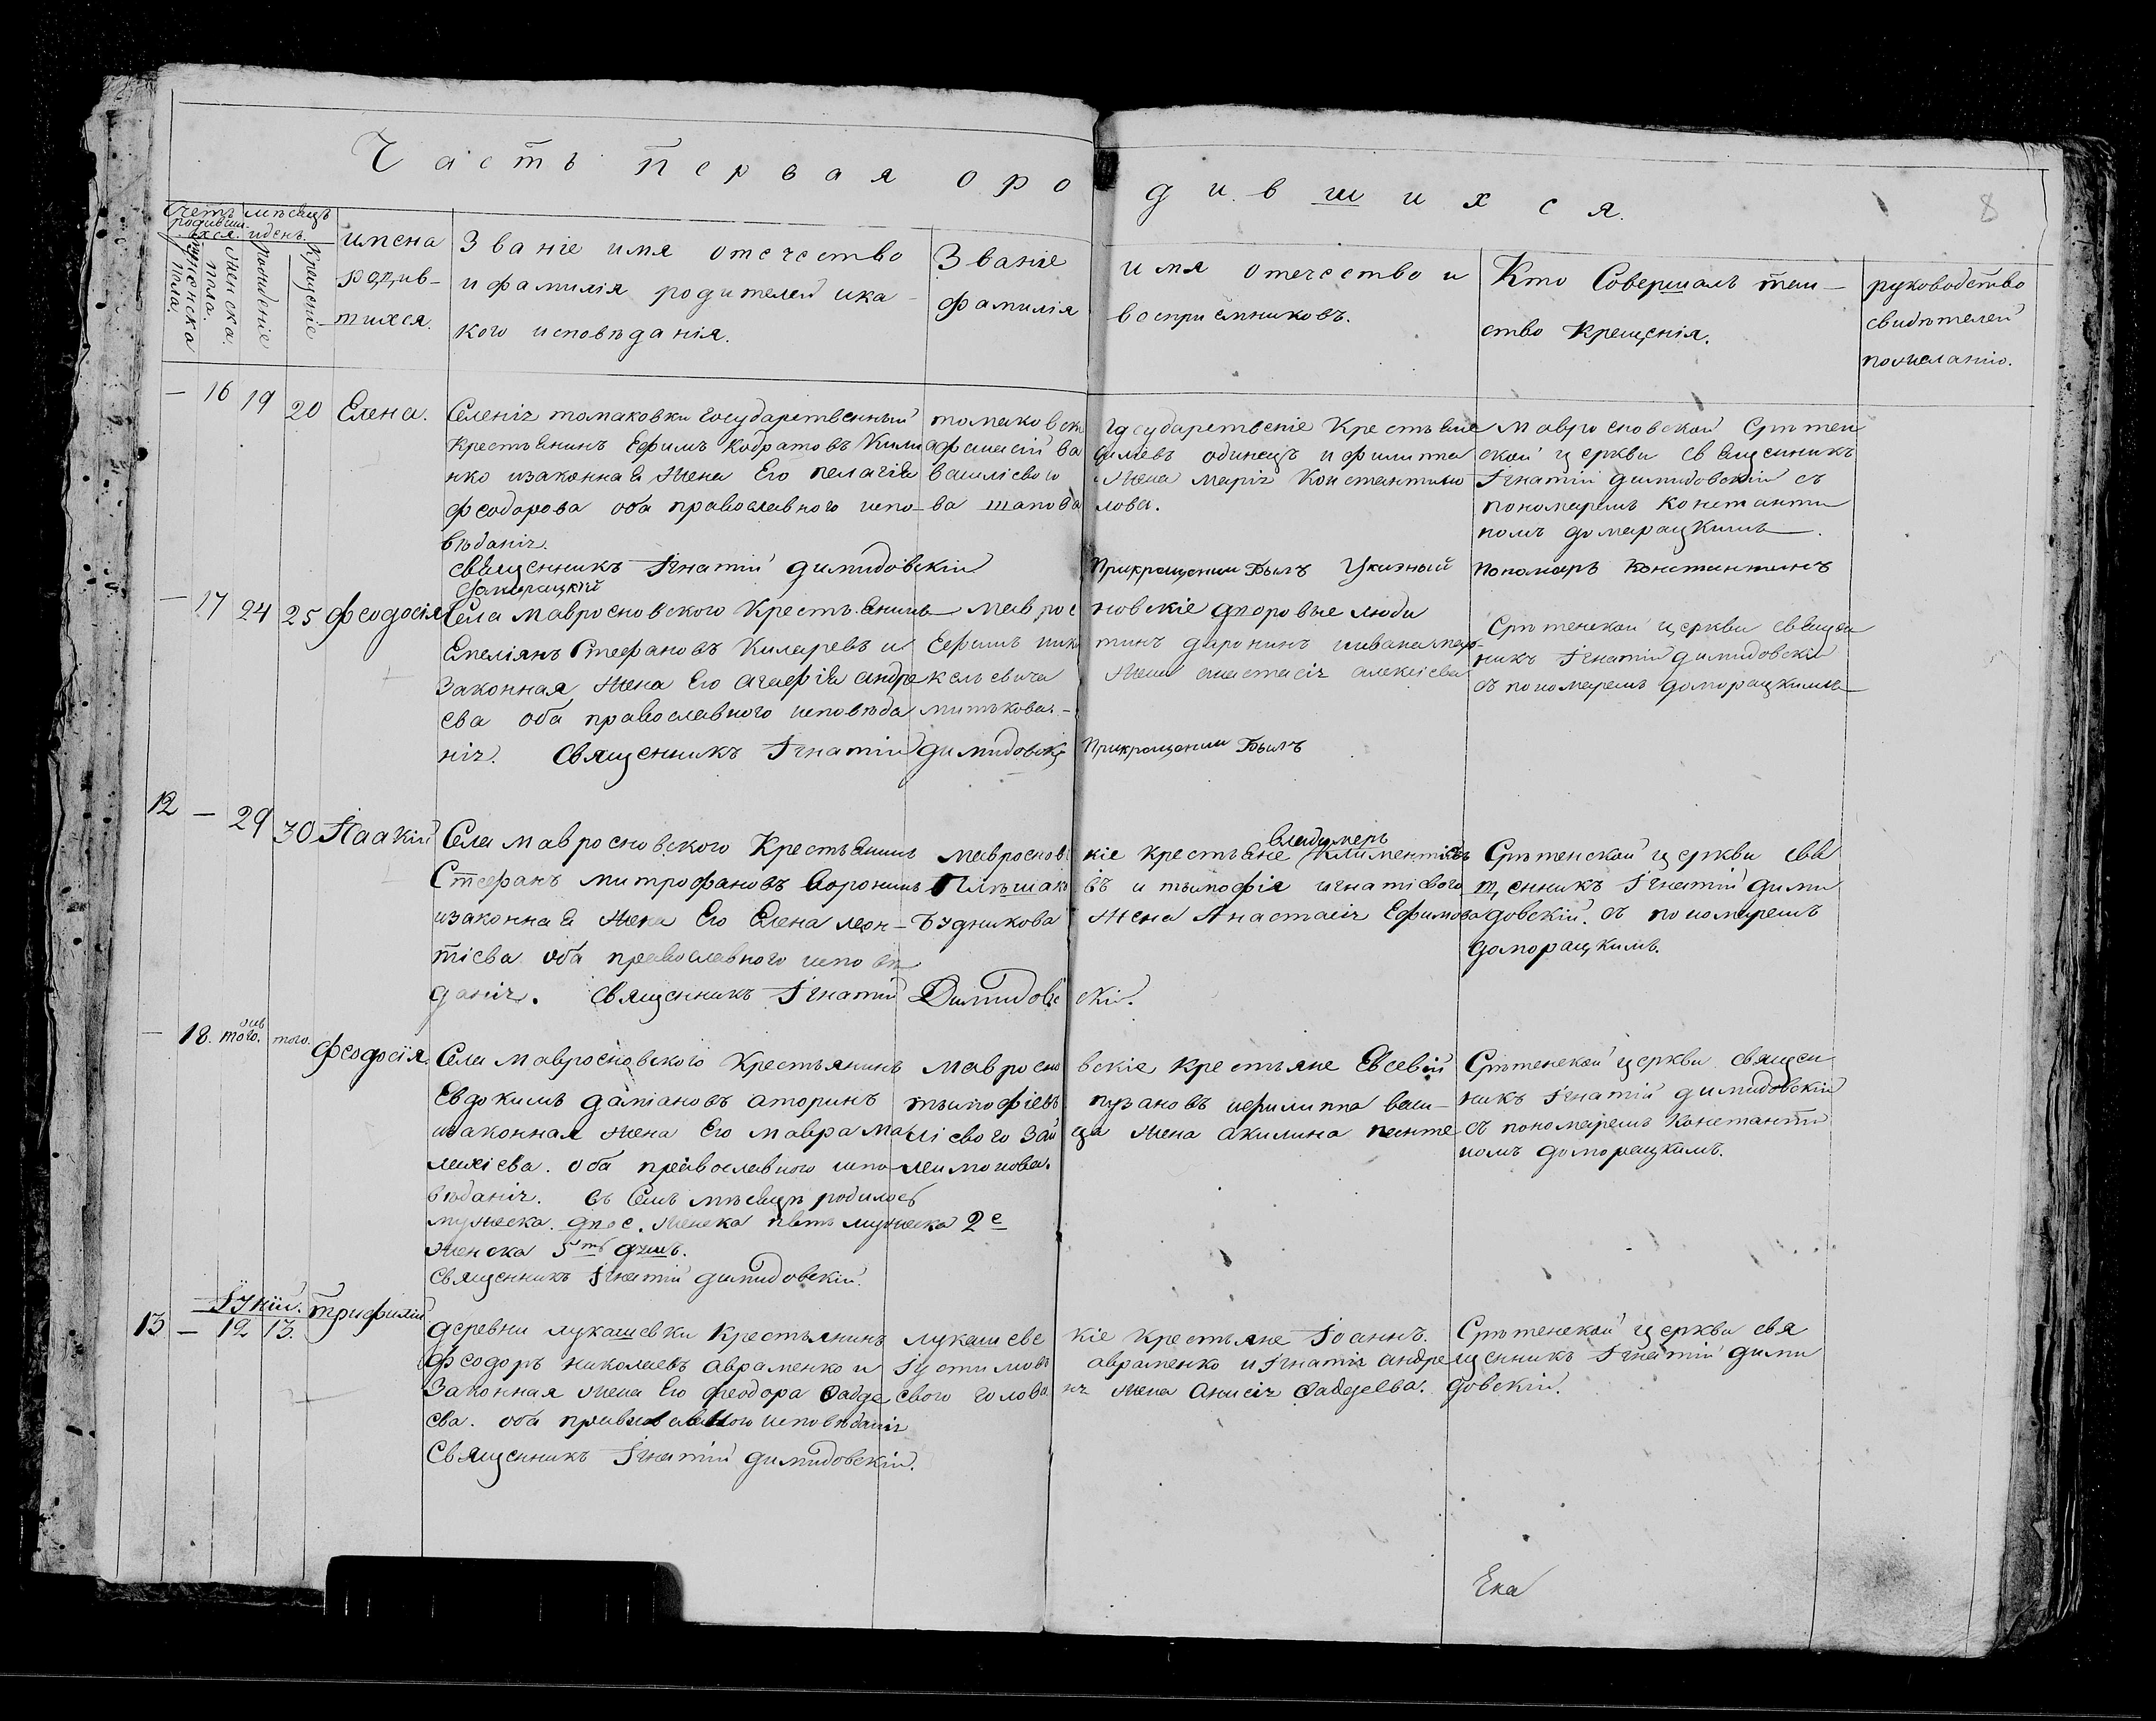 Часть первая о родившихся.
8
Счетъ родившихся.
мѣсяцъ и день.
мужеска пола.
женска пола.
рожденіе
Крещеніе
имена родив-
шихся.
Званіе имя отечество
и фамилія родителей и ка-
кого исповѣданія.
Званіе имя отечество и
фамилія воспріемниковъ.
Кто Совершалъ таин-
ство Крещенія.
руководство
свидѣтелей
по желанію.
— 16 19 20 Елена.
Селенія томаковки государственный
Крестьянинъ Ефимъ
и законная жена Его пелагія
Феодорова оба православного испо-
вѣданія.
Священникъ Ігнатій димидовскій
томаковскі государственіе Крестьяне
афанасій Ва одинецъ и филиппа
василіевого жена марія Константино
ва шаповалова.
мавросновской срѣтен
ской церкви священникъ
Ігнатій димидовскій съ
пономаремъ Константи
номъ домарацкимъ.
При крещении Былъ Указный Пономаръ Константинъ
Домарацкій
— 17 24 25 Феодосія
Села мавросновского Крестьянинъ
Емеліянъ Стефановъ Киларевъ и
Законная жена Его агафія андре
ева оба православного исповѣда
нія. Священникъ Ігнатій димидовскі
мавросновскіе дворовые люди
Ефимъ
жена анастасія алексіева
митькова.
Срѣтенской церкви священ
никъ Ігнатій димидовскій
съ пономаремъ доморацкимъ
При крещении Былъ
12 — 29 30 Ісаакій
Села мавросновского Крестьянинъ
Стефанъ митрофановъ Воронинъ
и законная жена Его Елена леон-
тіева оба православного исповѣ
данія. Священникъ Ігнатій Димидовскій.
мавросновскіе крестьяне владимеръ Климентіевъ
и тимофія игнатіевого
Будникова жена Анастасія Ефимова
Срѣтенской церкви свя
щенникъ Ігнатій дими
довскій. съ пономаремъ
доморацкимъ.
— 18. того. того. Феодосія.
Села мавросновского Крестьянинъ
Евдокимъ даміановъ аторинъ
и законная жена Его мавра ма
лахіева. оба православного испо-
вѣданія. въ семъ мѣсяцѣ родилось
мужеска. двое. женска пять мужеска 2е
женска 5ть душъ.
Священникъ Ігнатій димидовскій.
мавросновскіе крестьяне Евсевій
тимофіевъ пузановъ и филиппа васи-
ліевого жена акилина панте
леимонова.
Срѣтенской церкви священ
никъ Ігнатій димидовскій
съ пономаремъ Константи
номъ доморацкимъ.
Іуній.
13 — 12 13. трифилій
деревни лукашевки Крестьянинъ
Феодоръ николаевъ авраменко и
Законная жена Его феодора Фадде
ева. оба православного исповѣданія
Священникъ Ігнатій димидовскій.
лукашевскіе крестьяне Іоаннъ.
Іустиновъ авраменко и Ігнатія андре
евого жена Анисія Фаддеева.
Срѣтенской церкви свя
щенникъ Ігнатій дими
довскій.
Ека